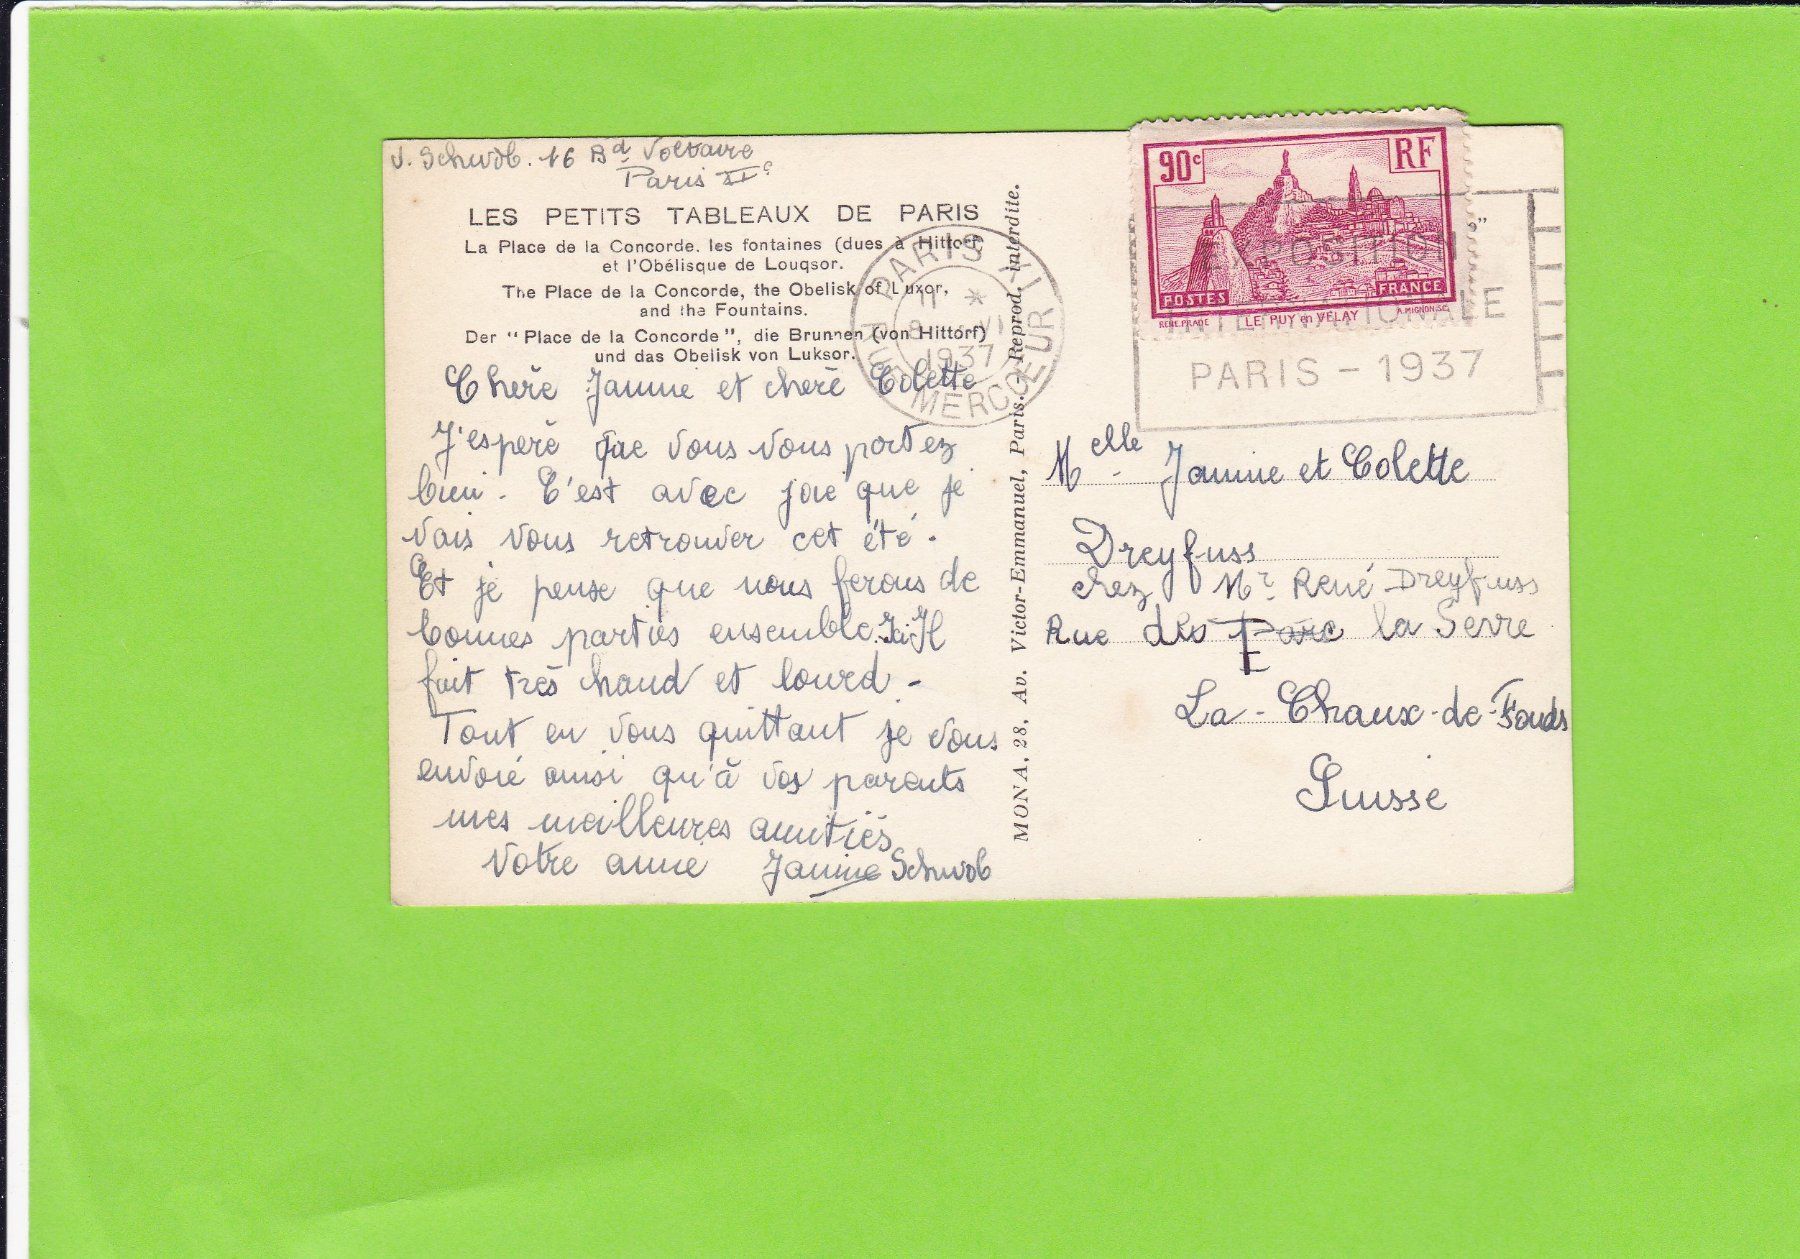 J. Schwob. 16 Bd Voltaire
Paris XIe
LES PETITS TABLEAUX DE PARIS
La Place de la Concorde, les fontaines (dues à Hittorf)
et l'Obélisque de Louqsor.
The Place de la Concorde, the Obelisk of Luxor,
and the Fountains.
Der "Place de la Concorde", die Brunnen (von Hittorf)
und das Obelisk von Luksor.
Cherè Janine et cherè Colette
J'esperè que vous vous portez
bien. C'est avec joie que je
vais vous retrouver cet été.
Et je pense que nous ferons de
bonnes parties ensemble. Ici Il
fait très chaud et lourd -
Tout en vous quittant je vous
envoié ainsi qu'à vos parents
mes meilleures amitiés
Votre amie Janine Schwob
MONA, 28, Av. Victor-Emmanuel, Paris. - Reprod. interdite.
PARIS XI
11 *
1937
RUE MERCOEUR
90c RF
POSTES FRANCE
RENE.PRADE LE PUY en VELAY A.MIGNON.SC.
EXPOSITION
INTERNATIONALE
PARIS - 1937
Melle Janine et Colette
Dreyfuss
chez Mr René Dreyfuss
Rue des Parc la Serre
La-Chaux-de-Fonds
Suisse